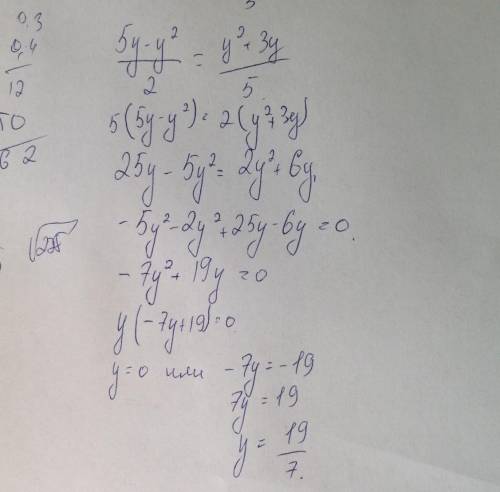 0,3
0,4
12
50
62
5y-y² / 2 = y²+3y / 5
5(5y-y²)=2(y²+3y)
25y-5y²=2y²+6y
-5y²-2y²+25y-6y=0.
-7y²+19y=0
y(-7y+19)=0
y=0 или -7y=-19
7y=19
y=19/7.